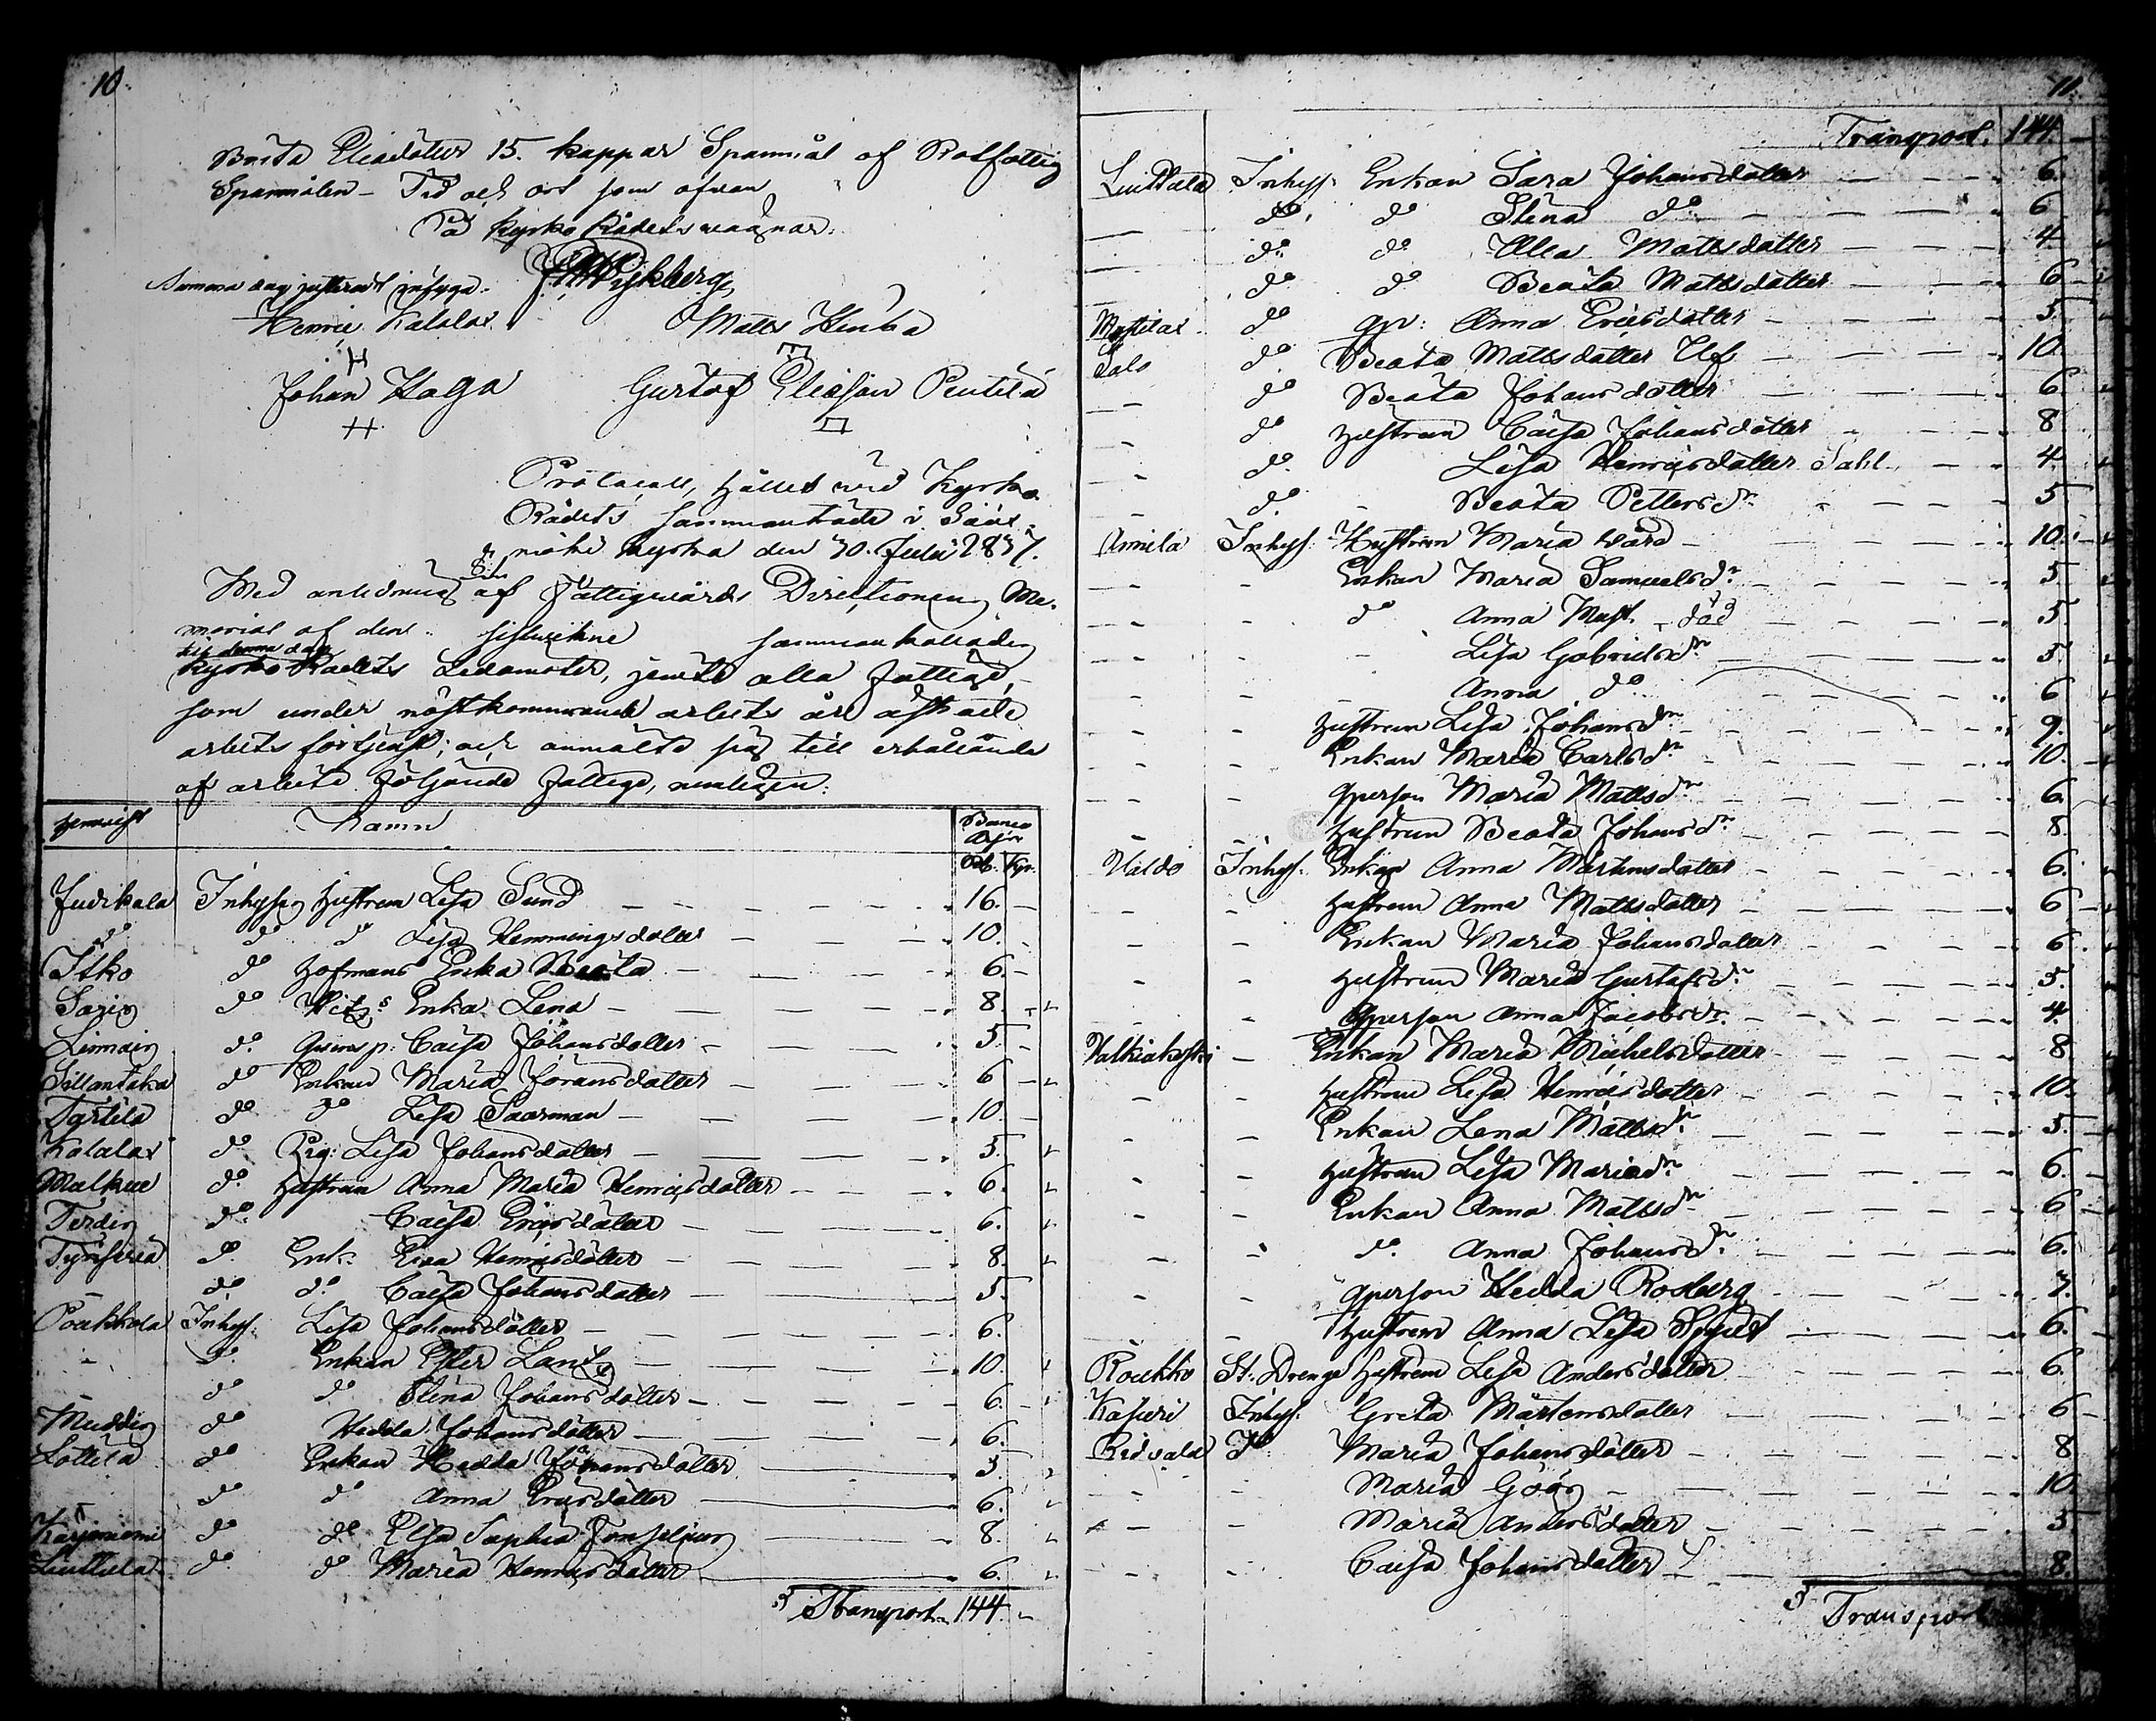 10.
Brita Eliædotter 15. kappar Spannmål af Rotfattig
Spannmålen – Tid och ort som ofvan
På Kyrko Rådets vägnar.
Samma dag justeradt intyga.
Henric Kalalax
Matts Hinka
Johan Haga
Gustof Eliasson Pentilä
Protocoll, hållet vid Kyrko
Rådets sammanträde i Sääx-
mäki kyrka den 30. Julii 1837.
Med anledning af Fattigvårds Directionens Me-
morial af den
till denna dag
Kyrko Rådets Ledamöter, jemte alla fattige,
som under nästkommande arbets år åstunda
arbets förtjenst; och anmälte sig till erhållande
af arbete följande fattige, nemligen:
Hemvist Namn Banco
Rub. Kop.
Judikala Inhyses Hustrun Lisa Sund 16.
do do do Lisa Hemmingsdotter 10.
Itko do Hofmans Enka Beata 6.
Sarin do Enka Lena 8.
do Caisa Johansdotter 5.
Sillantaka do Enkan Maria Göransdotter 6
do do Lisa Saarman 10
Kalalax do Pig: Lisa Johansdotter 5.
Walkue do Hustrun Anna Maria Henricsdotter 6.
do Caisa Ericsdotter 6.
do Enk: Eva Henricsdotter 8.
do do Caisa Johansdotter 5.
Poukkola Inhys: Lisa Johansdotter 6.
do Enkan Ester Lantz 10.
do do Stina Johansdotter 6.
do Hedda Johansdotter 6.
Lottila do Enkan Hedda Johansdotter 5.
do do Anna Ericsdotter 6.
Karjoniemi do do Elsa Sophia 8.
Luttula do do Maria Henricsdotter 6.
Transport 144.
11.
Transport. 144.
Luttula Inhys: Enkan Sara Johansdotter 6.
do do Stina do 6
do do Ulla Mattsdotter 4
do do Beata Mattsdotter 6
do qv: Anna Ericsdotter 5.
Salo do Beata Mattsdotter Ulf 10.
do Beata Johansdotter 6.
do Hustrun Caisa Johansdotter 8
do Lisa Henricsdotter Sahl 4.
do Beata Pettersdr 5
Annila Inhys: Hustrun Maria Wärd 10.
Enkan Maria Samuelsdr 5
do Anna död 5
Lisa Gabrielsdr 5.
Anna do 6
Hustrun Lisa Johansdr 9.
Enkan Maria Carlsdr 10.
Qperson Maria Mattsdr 6.
Hustrun Beata Johansdr 8.
Waldo Inhys: Enkan Anna Mårtensdotter 6.
Hustrun Anna Mattsdotter 6
Enkan Maria Johansdotter 6
Hustrun Maria Gustafsdr 5.
Qperson Anna Jacobsdr 4.
Walkiakoski Enkan Maria Michelsdotter 8
Hustrun Lisa Henricsdotter 10.
Enkan Lena Mattsdr 5.
Hustrun Lisa Mariædr 6.
Enkan Anna Mattsdr 6
do Anna Johansdr 6.
Qperson Hedda Rosberg 7.
Hustrun Anna Lisa 6.
Roukko St: Drenge Hustrun Lisa Andersdotter 6.
Kasuri Inhys: Greta Mårtensdotter 6
Ridvala do Maria Johansdotter 8
Maria Göös 10.
Maria Andersdotter 5.
Caisa Johansdotter 8
Transport